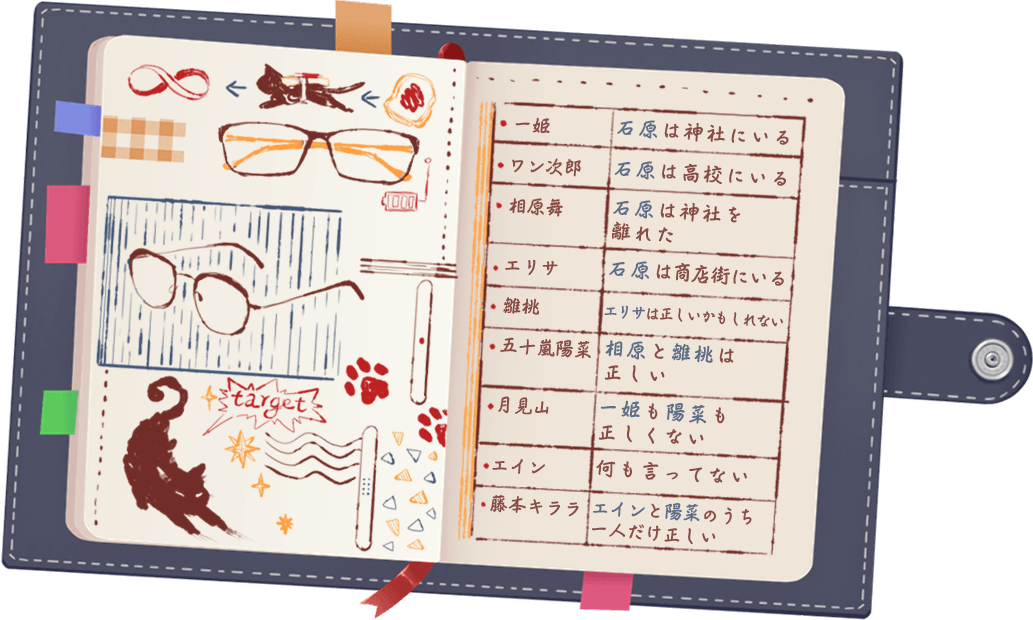 target
一姫
石原は神社にいる
ワン次郎
石原は高校にいる
相原舞
石原は神社を
離れた
エリサ
石原は商店街にいる
雛桃
エリサは正しいかもしれない
五十嵐陽菜
相原と雛桃は
正しい
月見山
一姫も陽菜も
正しくない
エイン
何も言ってない
藤本キララ
エインと陽菜のうち
一人だけ正しい